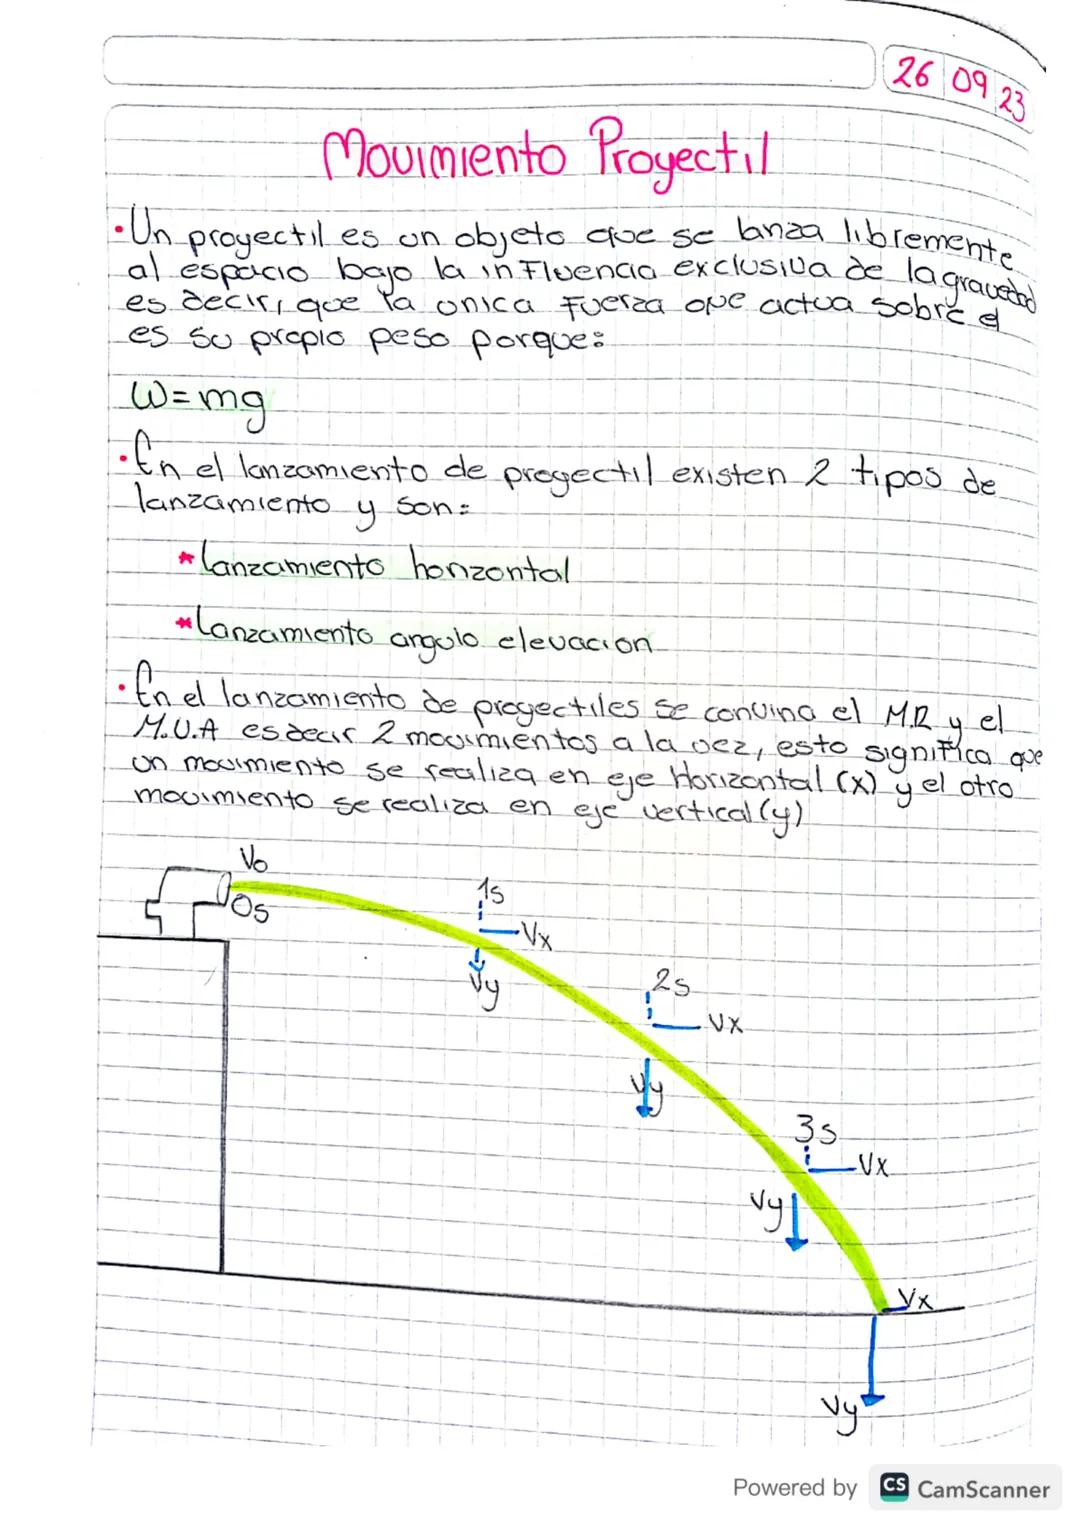 26 09 23
Movimiento Proyectil
•Un proyectil es un objeto que se lanza libremente
al espacio bajo la influencia exclusiva de la gravedad
es decir, que la unica fuerza que actua sobre el
es su propio peso porque:
W=mg
•En el lanzamiento de proyectil existen 2 tipos de
lanzamiento y son:
*Lanzamiento horizontal
*Lanzamiento angulo elevacion
•En el lanzamiento de proyectiles se convina el M.R y el
M.U.A es decir 2 movimientos a la vez, esto significa que
un movimiento se realiza en eje Horizontal (x) y el otro
movimiento se realiza en eje vertical (y)
Vo
0s
1s
Vx
Vy
2s
Vx
Vy
3s
Vx
Vy
Vx
Vy
Powered by CS CamScanner